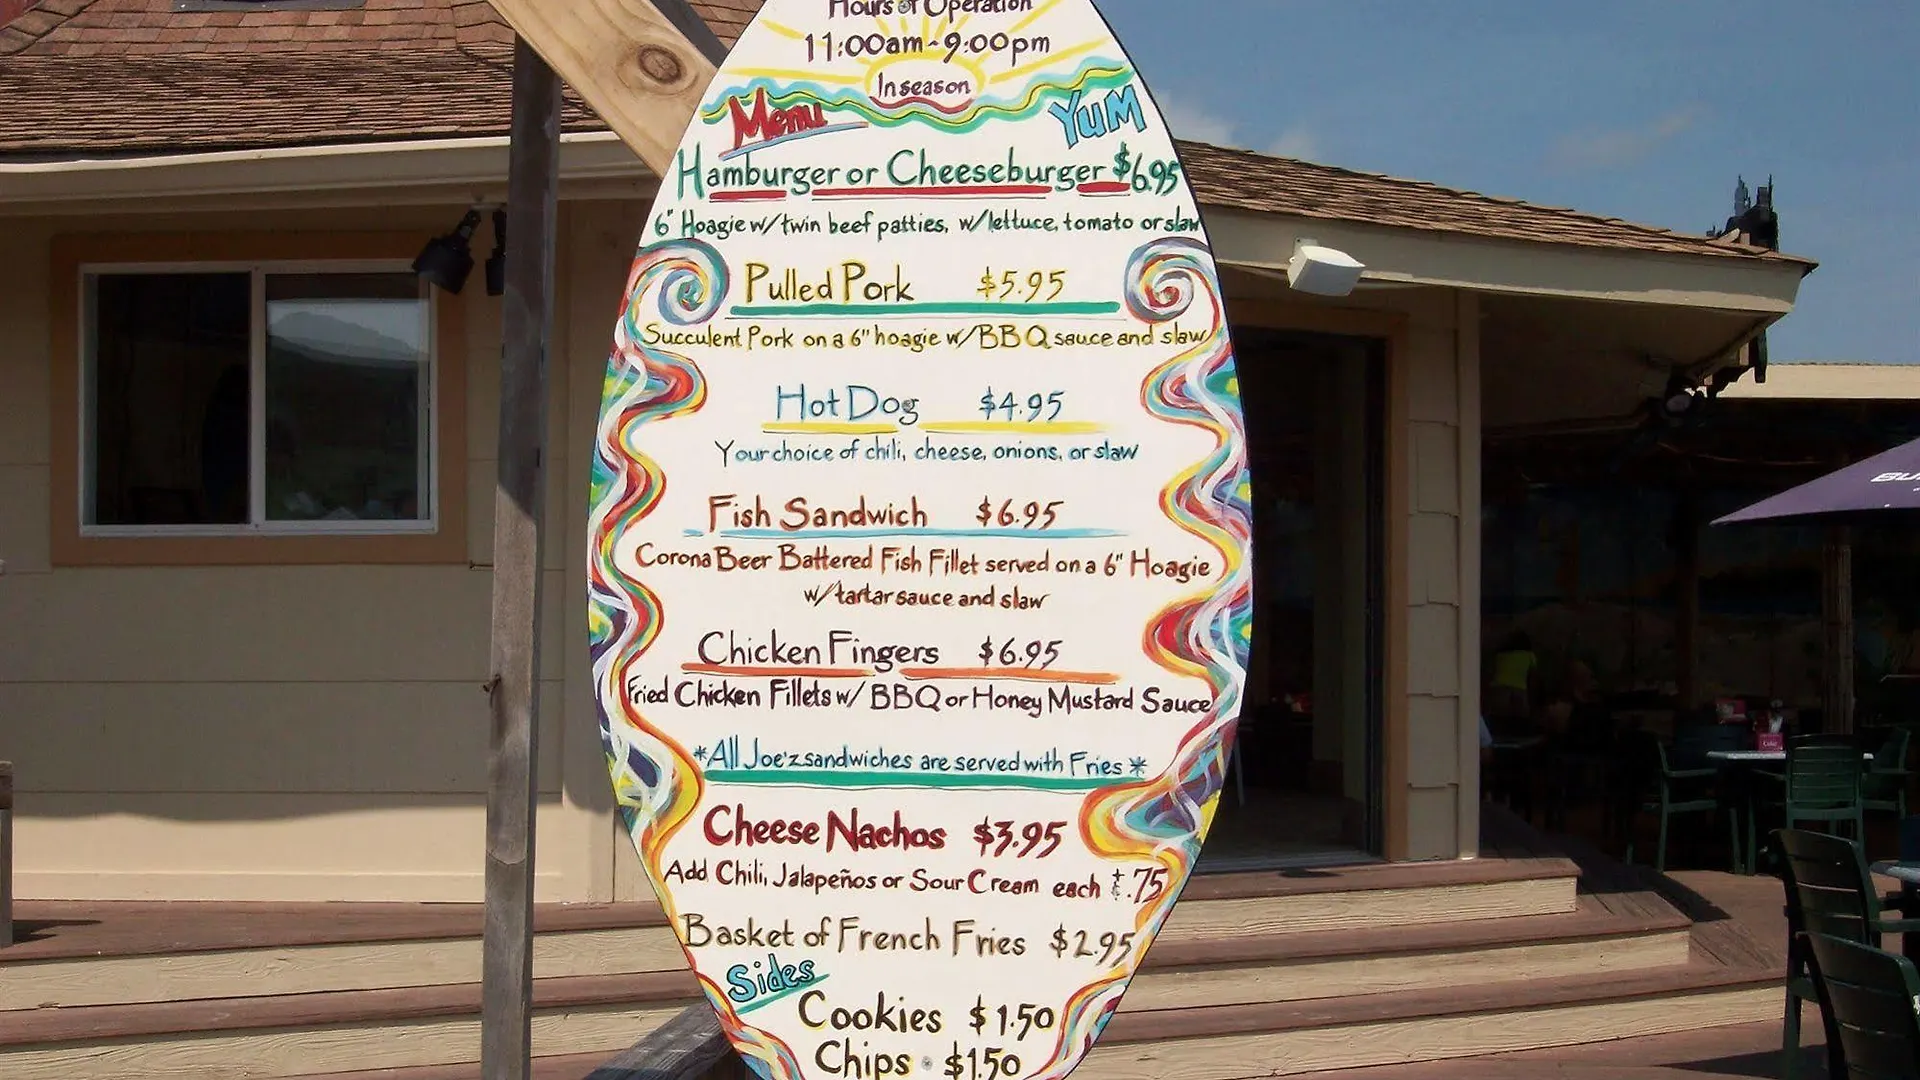 Hours of Operation
11:00am-9:00pm
In season
Menu
YUM
Hamburger or Cheeseburger $6.95
6" Hoagie w/twin beef patties, w/lettuce, tomato or slaw
Pulled Pork $5.95
Succulent Pork on a 6" hoagie w/BBQ sauce and slaw
Hot Dog $4.95
Your choice of chili, cheese, onions, or slaw
Fish Sandwich $6.95
Corona Beer Battered Fish Fillet served on a 6" Hoagie
w/tartar sauce and slaw
Chicken Fingers $6.95
Fried Chicken Fillets w/ BBQ or Honey Mustard Sauce
*All Joe'z sandwiches are served with Fries*
Cheese Nachos $3.95
Add Chili, Jalapeños or Sour Cream each .75
Basket of French Fries $2.95
Sides
Cookies $1.50
Chips $1.50